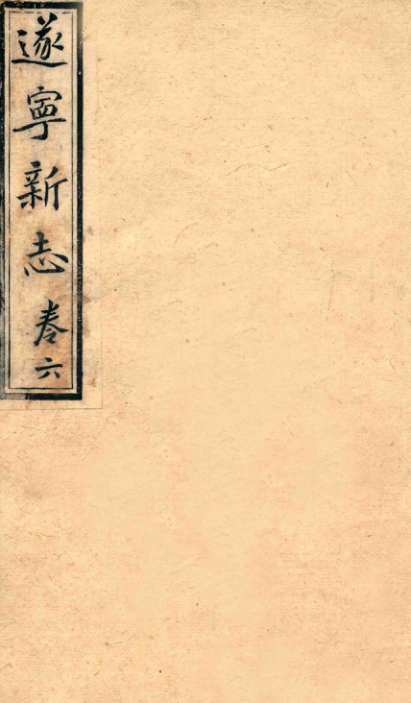 遂寧新志卷六